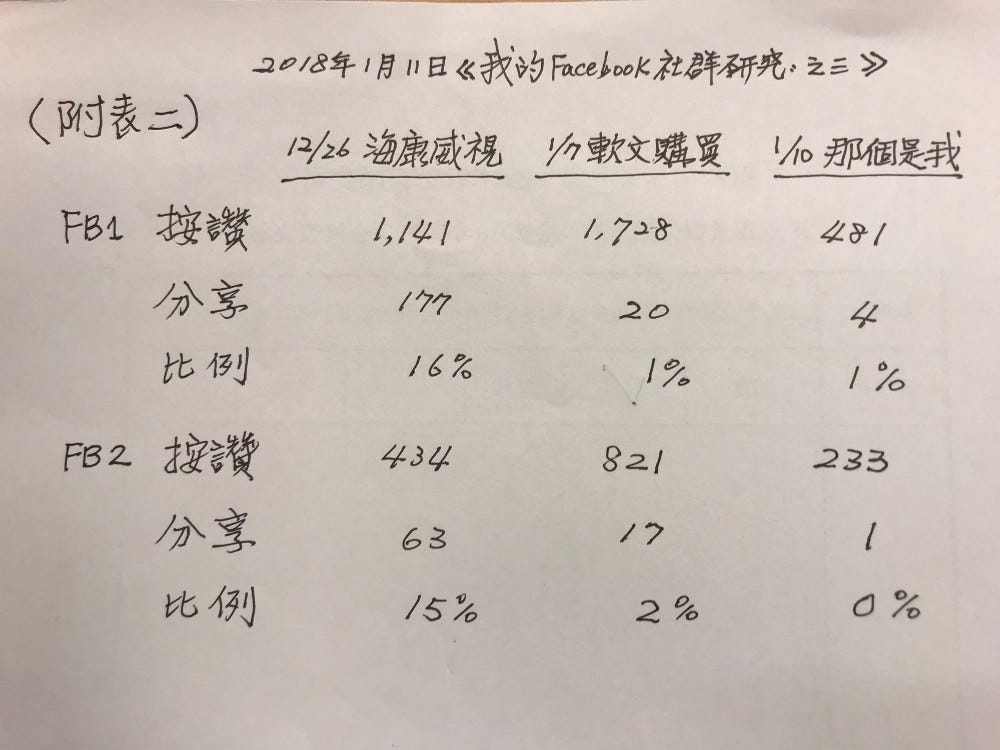 2018年1月11日《我的Facebook社群研究：之三》
(附表二)
12/26 海康威視 1/7 軟文購買 1/10 那個是我
FB1 按讚 1,141 1,728 481
分享 177 20 4
比例 16% 1% 1%
FB2 按讚 434 821 233
分享 63 17 1
比例 15% 2% 0%